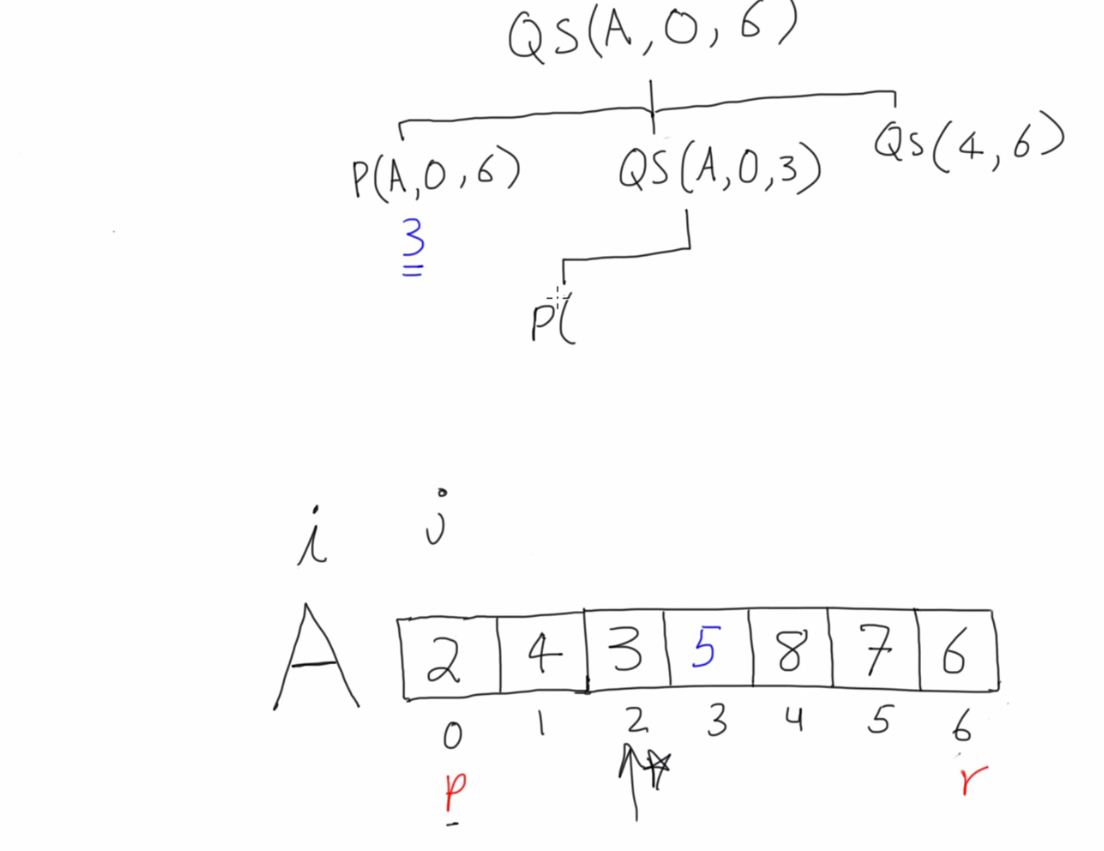 QS(A,0,6)
P(A,0,6) QS(A,0,3) QS(4,6)
3
P(
i j
A 2 4 3 5 8 7 6
0 1 2 3 4 5 6
p r